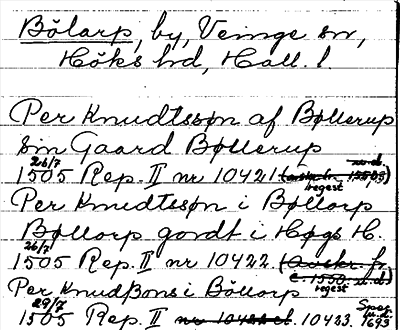 Bölarp, by, Veinge sn,
Höks hd, Hall. l.
Per Knudtssøn af Bøllerup
sin Gaard Bøllerup
26/7 u.d.
1505 Rep. II nr 10421 regest
Per Knudtssøn i Bøllorp
Bøllorp gordt i Høgs H.
26/7
1505 Rep. II nr 10422 (avskr. fr.
c. 1550. u.d.) regest
Per Knudßøns i Böllorp
29/7 1505 Rep. II nr 10423. 1693